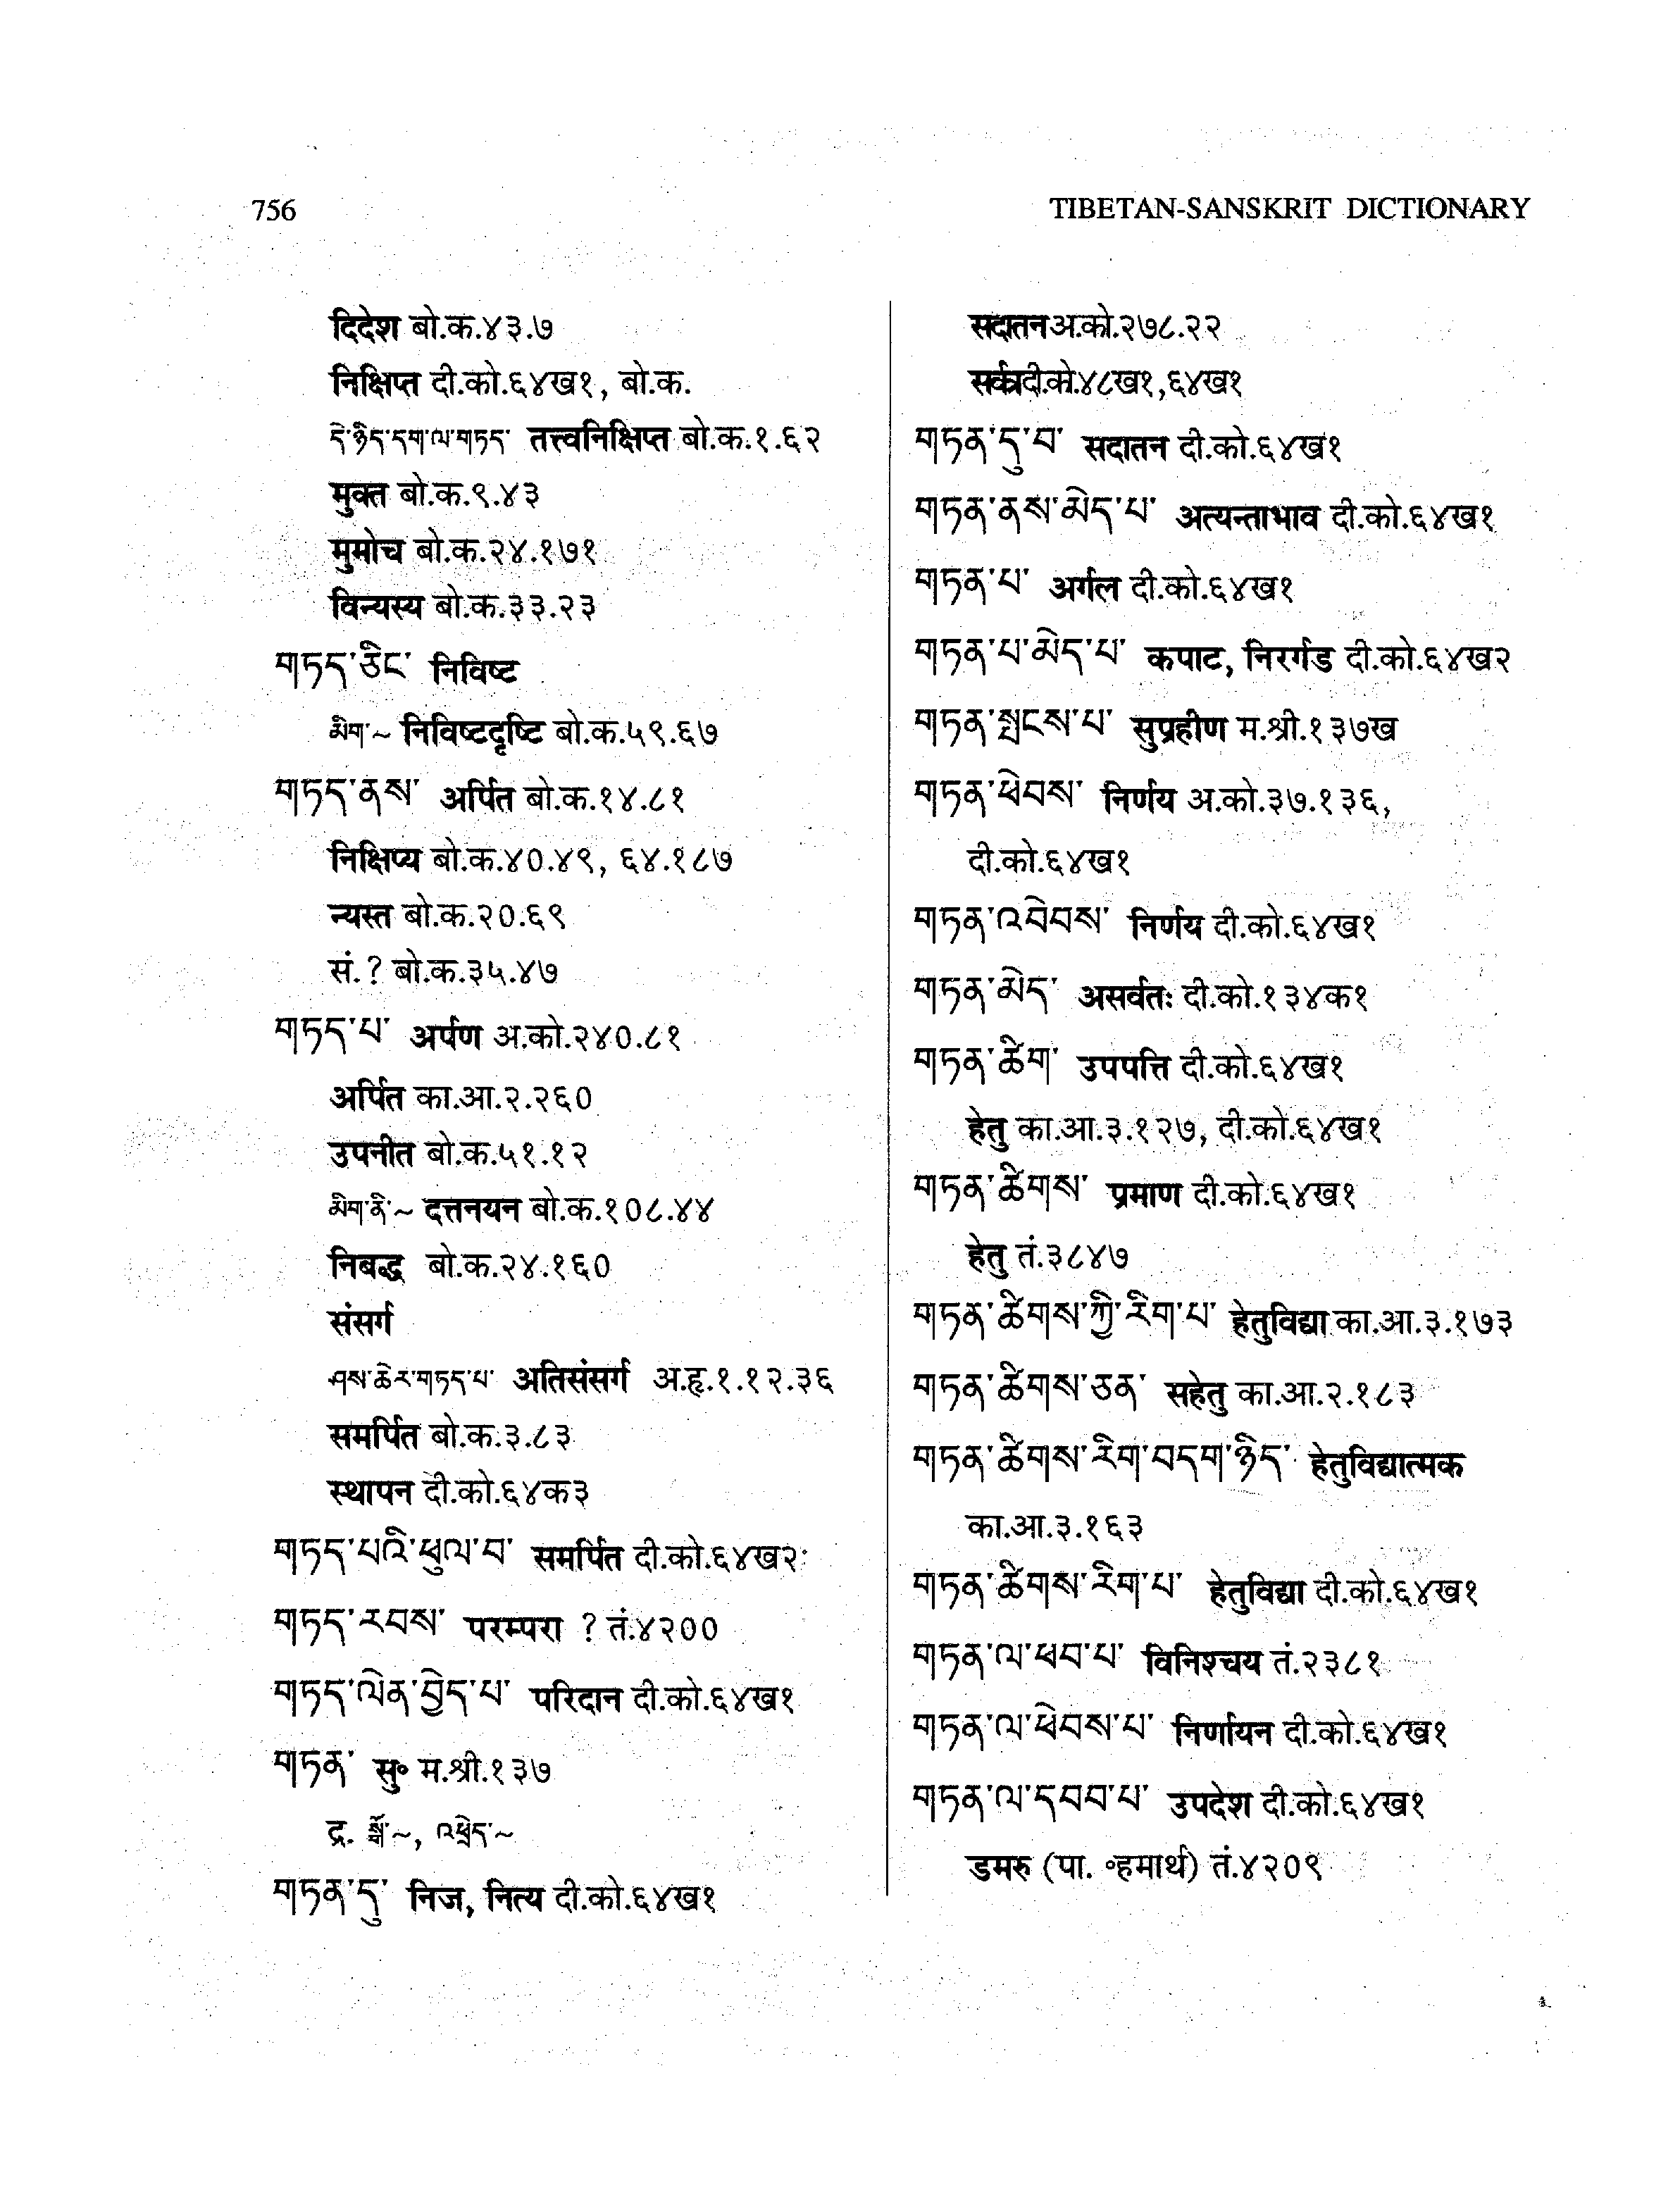 756
TIBETAN-SANSKRIT DICTIONARY
दिदेश बो.क.४३.७
निक्षिप्त दी.को.६४ख१, बो.क.
དེ་ཉིད་དག་ལ་གཏད་ तत्त्वनिक्षिप्त बो.क.१.६२
मुक्त बो.क.९.४३
मुमोच बो.क.२४.१७१
विन्यस्य बो.क.३३.२३
གཏད་ཅིང་ निविष्ट
མིག་~ निविष्टदृष्टि बो.क.५९.६७
གཏད་ནས་ अर्पित बो.क.१४.८१
निक्षिप्य बो.क.४०.४९, ६४.१८७
न्यस्त बो.क.२०.६९
सं.? बो.क.३५.४७
གཏད་པ་ अर्पण अ.को.२४०.८१
अर्पित का.आ.२.२६०
उपनीत बो.क.५१.१२
མིག་ནི་~ दत्तनयन बो.क.१०८.४४
निबद्ध बो.क.२४.१६०
संसर्ग
ཤས་ཆེར་གཏད་པ་ अतिसंसर्ग अ.हृ.१.१२.३६
समर्पित बो.क.३.८३
स्थापन दी.को.६४क३
གཏད་པའི་ཕུལ་བ་ समर्पित दी.को.६४ख२
གཏད་རབས་ परम्परा ? तं.४२००
གཏད་ལེན་བྱེད་པ་ परिदान दी.को.६४ख१
གཏན་ सु॰ म.श्री.१३७
द्र. སྒོ་~, འཕྲེད་~
གཏན་དུ་ निज, नित्य दी.को.६४ख१
सदातन अ.को.२७८.२२
दी.को.४८ख१,६४ख१
གཏན་དུ་བ་ सदातन दी.को.६४ख१
གཏན་ནས་མེད་པ་ अत्यन्ताभाव दी.को.६४ख१
གཏན་པ་ अर्गल दी.को.६४ख१
གཏན་པ་མེད་པ་ कपाट, निरर्गड दी.को.६४ख२
གཏན་སྤངས་པ་ सुप्रहीण म.श्री.१३७ख
གཏན་ཕེབས་ निर्णय अ.को.३७.१३६,
दी.को.६४ख१
གཏན་འབེབས་ निर्णय दी.को.६४ख१
གཏན་མེད་ असर्वतः दी.को.१३४क१
གཏན་ཚིག་ उपपत्ति दी.को.६४ख१
हेतु का.आ.३.१२७, दी.को.६४ख१
གཏན་ཚིགས་ प्रमाण दी.को.६४ख१
हेतु तं.३८४७
གཏན་ཚིགས་ཀྱི་རིག་པ་ हेतुविद्या का.आ.३.१७३
གཏན་ཚིགས་ཅན་ सहेतु का.आ.२.१८३
གཏན་ཚིགས་རིག་བདག་ཉིད་ हेतुविद्यात्मक
का.आ.३.१६३
གཏན་ཚིགས་རིག་པ་ हेतुविद्या दी.को.६४ख१
གཏན་ལ་ཕབ་པ་ विनिश्चय तं.२३८१
གཏན་ལ་ཕེབས་པ་ निर्णायन दी.को.६४ख१
གཏན་ལ་དབབ་པ་ उपदेश दी.को.६४ख१
डमरु (पा. ॰हमार्थ) तं.४२०९